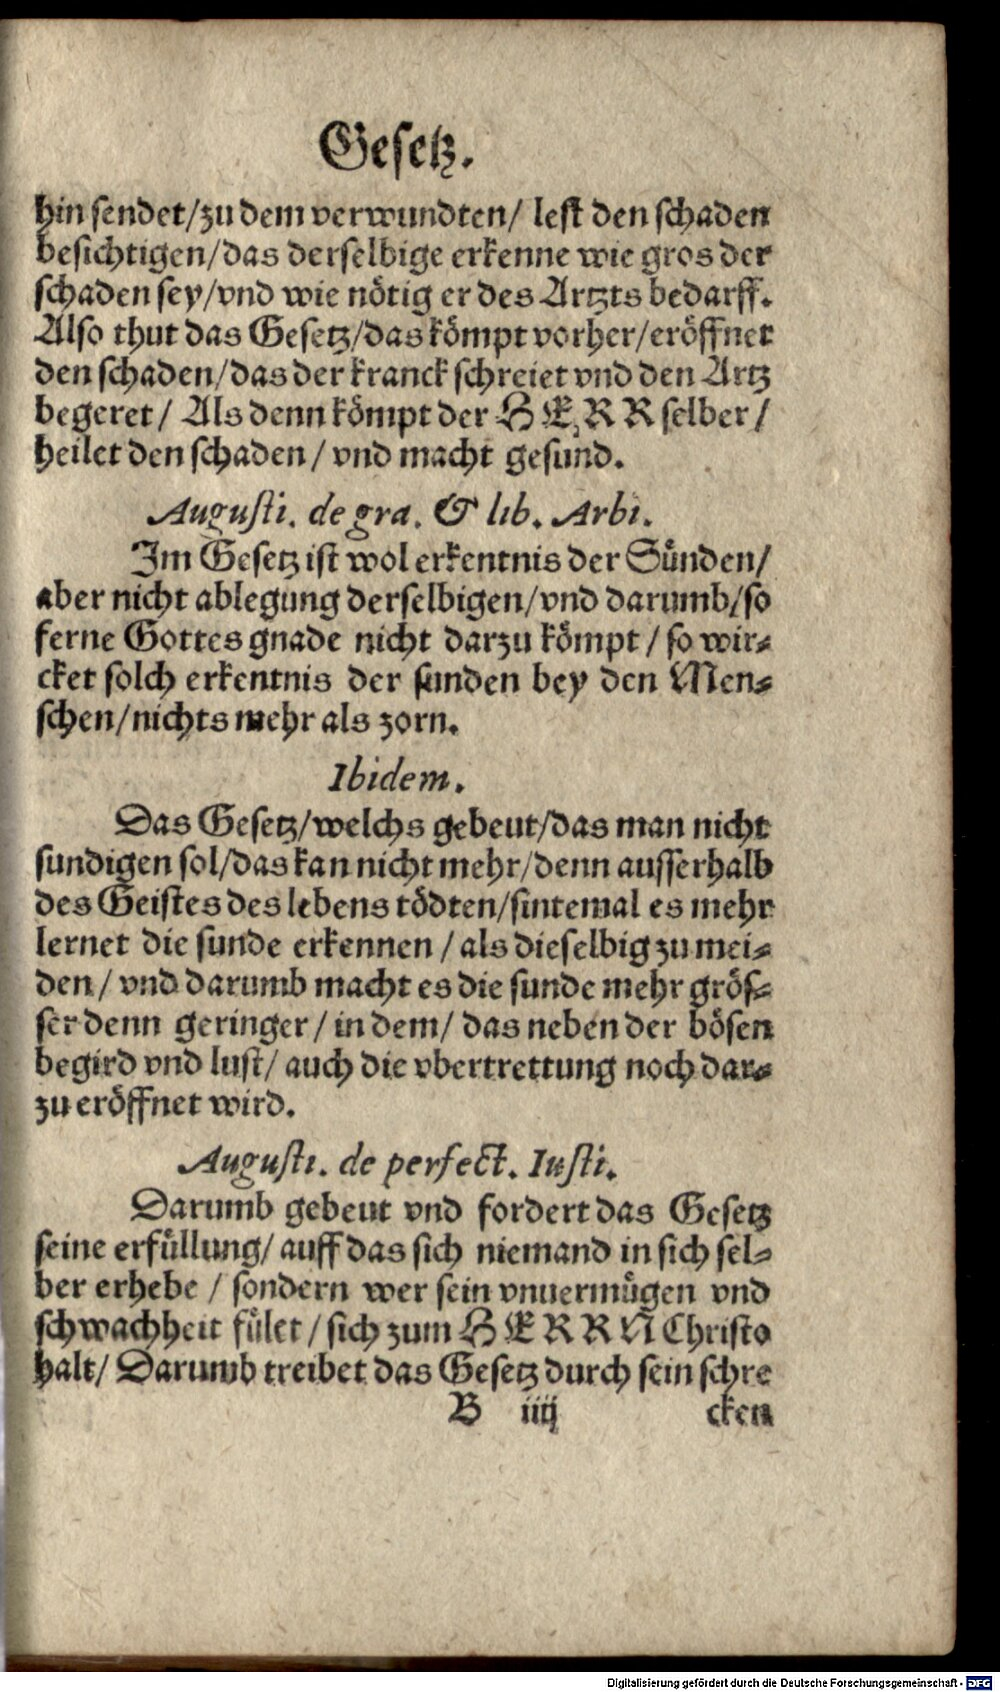 Gesetz.
hin sendet/zu dem verwundten/ lest den schaden
besichtigen/das derselbige erkenne wie gros der
schaden sey/vnd wie nötig er des Artzts bedarff.
Also thut das Gesetz/das kömpt vorher/eröffnet
den schaden/das der kranck schreiet vnd den Artz
begeret/ Als denn kömpt der HERR selber/
heilet den schaden/ vnd macht gesund.
Augusti. de gra. & lib. Arbi.
Im Gesetz ist wol erkentnis der Sünden/
aber nicht ablegung derselbigen/vnd darumb/so
ferne Gottes gnade nicht darzu kömpt/ so wir-
cket solch erkentnis der sunden bey den Men-
schen/nichts mehr als zorn.
Ibidem.
Das Gesetz/welchs gebeut/das man nicht
sundigen sol/das kan nicht mehr/denn ausserhalb
des Geistes des lebens tödten/sintemal es mehr
lernet die sunde erkennen/ als dieselbig zu mei-
den/ vnd darumb macht es die sunde mehr grös-
ser denn geringer/ in dem/ das neben der bösen
begird vnd lust/ auch die vbertrettung noch dar-
zu eröffnet wird.
Augusti. de perfect. Iusti.
Darumb gebeut vnd fordert das Gesetz
seine erfüllung/ auff das sich niemand in sich sel-
ber erhebe/ sondern wer sein vnuermügen vnd
schwachheit fület/ sich zum HERRN Christo
halt/ Darumb treibet das Gesetz durch sein schre
B iiij cken
Digitalisierung gefördert durch die Deutsche Forschungsgemeinschaft - DFG